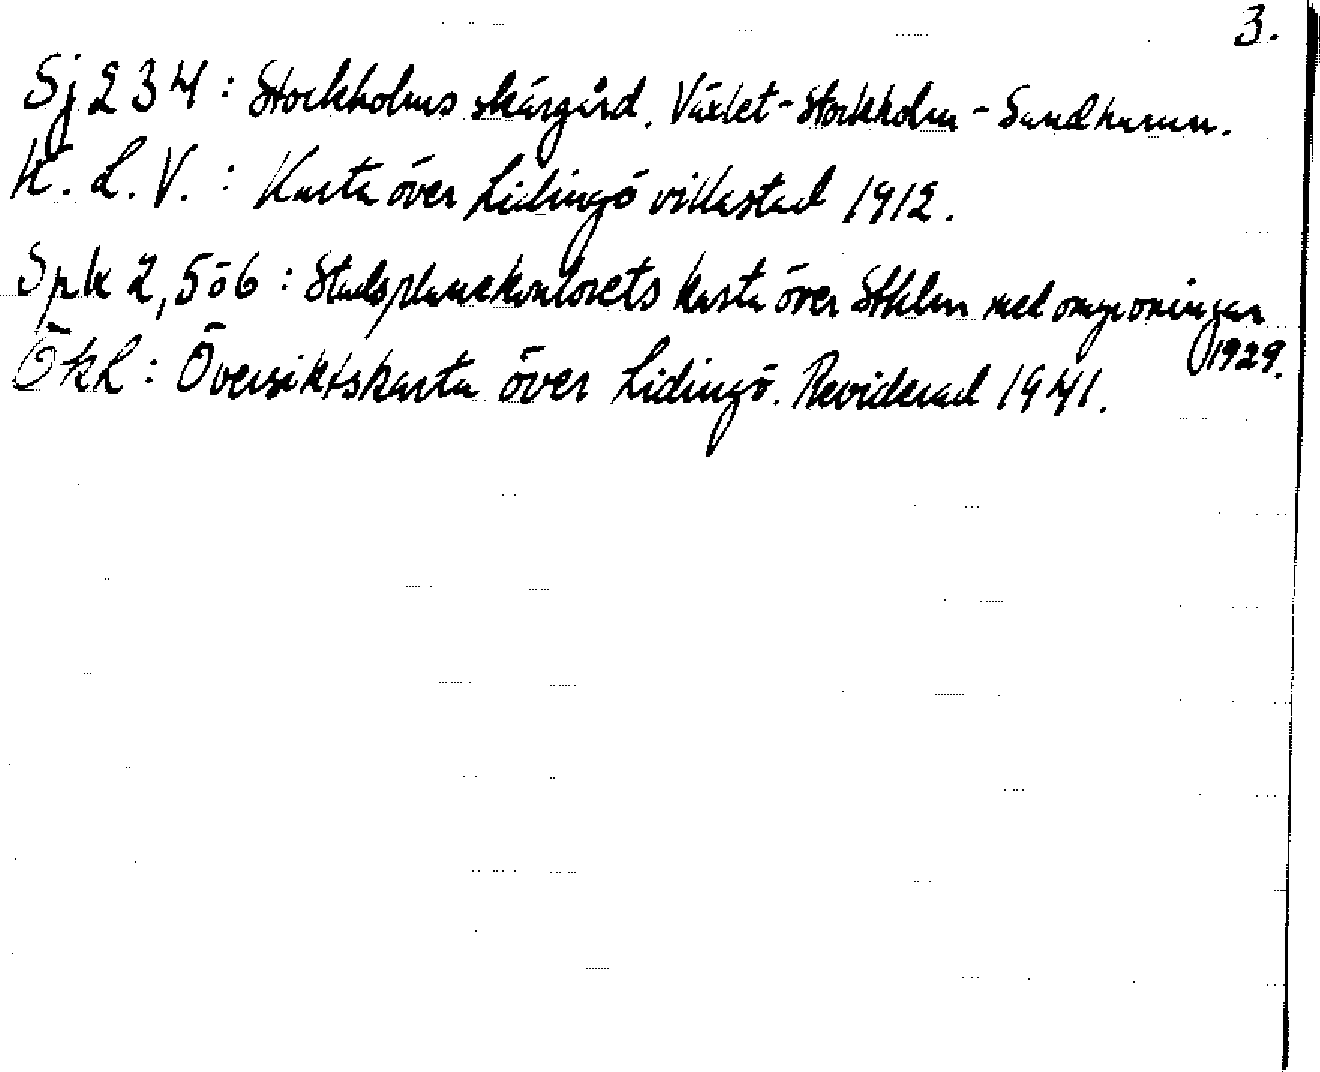 3.
Sj 234: Stockholms skärgård. Växlet-Stockholm-Sandhamn.
K. L. V. : Karta över Lidingö villastad 1912.
Spk 2, 5 o 6 : Stadsplanekontorets karta över Sthlm med omgivningar
1929.
ÖkL: Översiktskarta över Lidingö. Reviderad 1941.